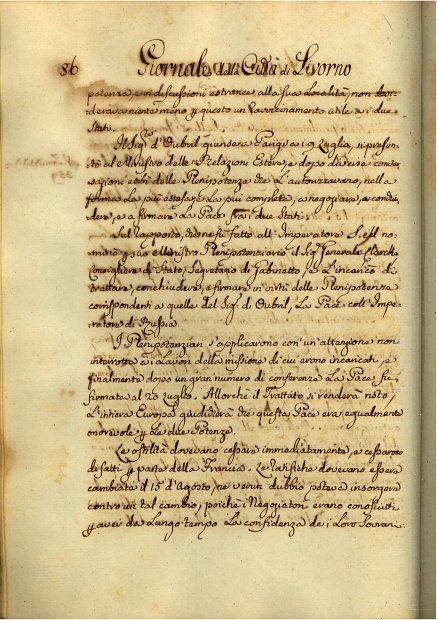 86 Giornale della Città di Livorno
potenza e in discussioni estranee alla sua Località, non desi-
deravano niente meno p questo un Ravvicinamento utile a i due
Stati.
Il Sig.r d'Oubril giunse a Parigi a 19 Luglio, si presen-
tò al Ministro delle Relazioni Estere, e dopo diverse conver-
sazioni esibì delle Plenipotenze che L'autorizzavano, nella
forma La più estesa, e La più completa, a negoziare, a conclu-
dere, e a firmare La Pace frà i due Stati.
Sul rapporto, che ne fù fatto all'Imperatore S. M. no-
minò p suo Ministro Plenipotenziario il Sig.r Generale Clarcke
Consigliere di Stato, Segretario di Gabinetto, e L'incaricò di
trattare, conchiudere, e firmare in virtù delle Plenipotenza
corrispondenti a quelle del Sig.r di Oubril, La Pace coll'Impe-
ratore di Russia.
I Plenipotenziari s'applicarono con un'attenzione non
interrotta a i Lavori della missione di cui erano incaricati, e
finalmente dopo un gran numero di conferenze La Pace fù
firmata al 20 Luglio. Allorchè il Trattato si renderà noto,
L'intiera Europa giudicherà che questa Pace era egualmente
onorevole p Le due Potenze.
Le ostilità dovevano cessare immediatamente, e cessarono
di fatti p parte della Francia. Le Ratifiche dovevano essere
cambiate il 15 d'Agosto, ne verun dubbio poteva insorgere
contro un tal cambio, poichè i Negoziatori erano conosciuti
p aver da Lungo tempo La confidenza de i Loro Sovrani.